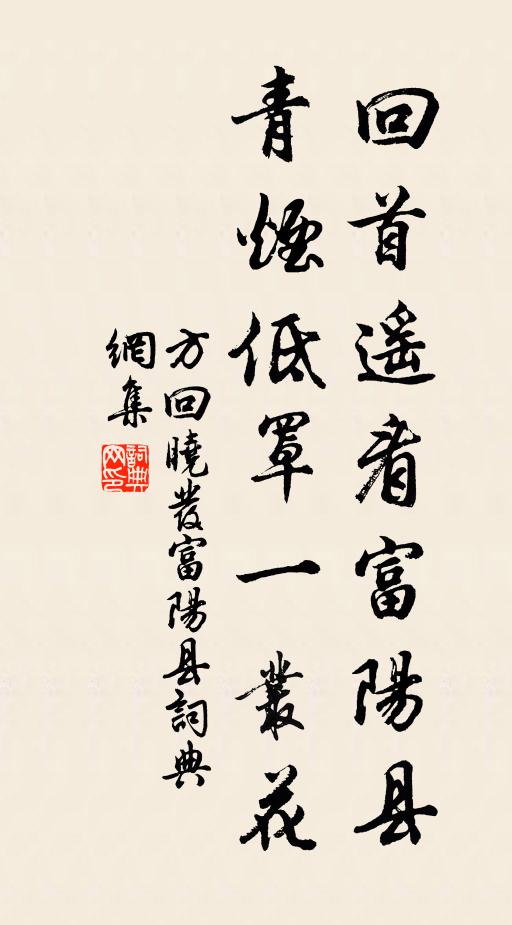 回首遥看富陽县
青煙低罩一叢花
方回曉發富陽县詞典
網集
詞典
网印